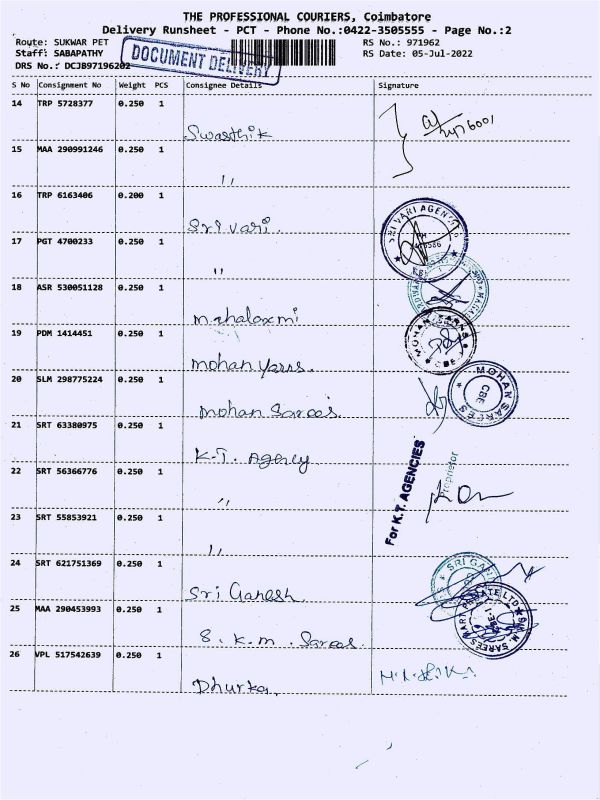 THE PROFESSIONAL COURIERS, Coimbatore
Delivery Runsheet - PCT - Phone No.:0422-3505555 - Page No.:2
Route: SUKWAR PET RS No.: 971962
Staff: SABAPATHY RS Date: 05-Jul-2022
DRS No.: DCJB97196202
DOCUMENT DELIVERY
S No Consignment No Weight PCS Consignee Details Signature
14 TRP 5728377 0.250 1
Swasthik
15 MAA 290991246 0.250 1
"
16 TRP 6163406 0.200 1
Sri Vari.
SRI VARI AGEN
17 PGT 4700233 0.250 1
"
18 ASR 530051128 0.250 1
mahalaxmi
19 PDM 1414451 0.250 1
mohan yarns.
20 SLM 298775224 0.250 1
mohan Sarees.
MOHAN SAREES
CBE
21 SRT 63380975 0.250 1
K.T. Agency
22 SRT 56366776 0.250 1
"
For K.T. AGENCIES
Proprietor
23 SRT 55853921 0.250 1
"
24 SRT 621751369 0.250 1
Sri Ganesh.
SRI GAN
25 MAA 290453993 0.250 1
S. K. m. Sarees.
26 VPL 517542639 0.250 1
Dhurka.